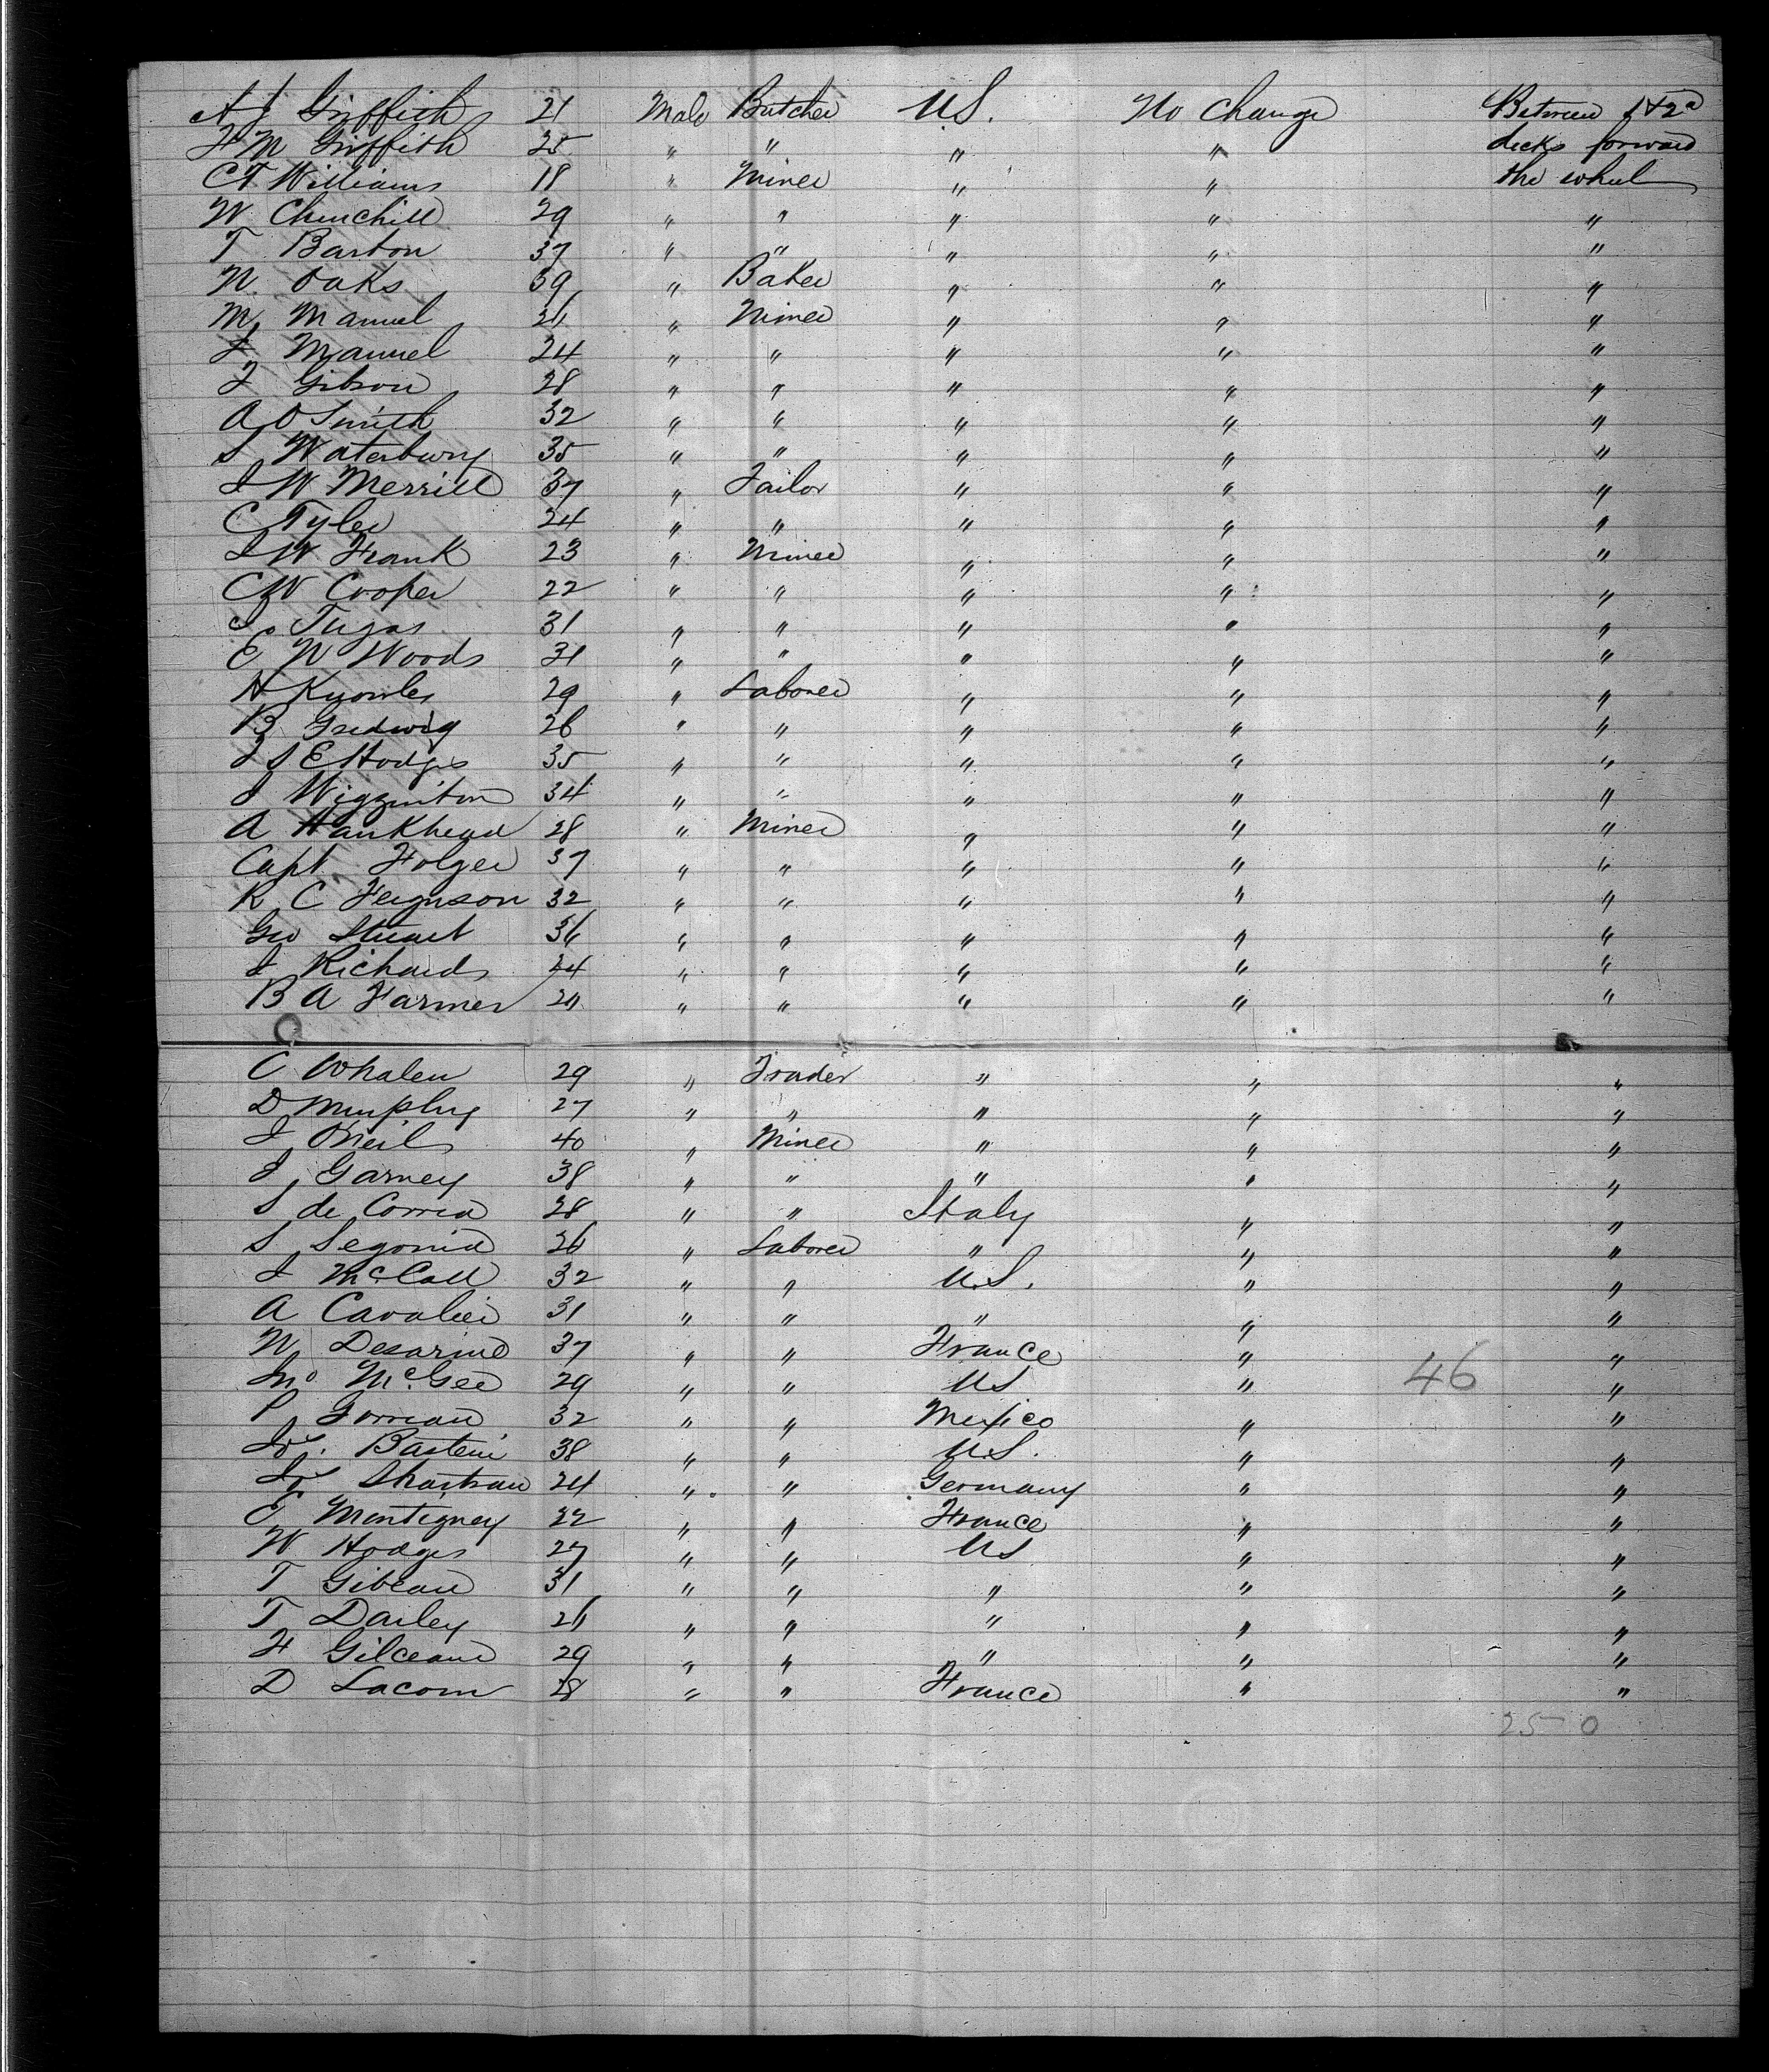 A J Griffith 21 Male Butcher U.S. No Change Between 1 & 2d
H M Griffith 25 " " " " decks forward
C T Williams 18 " Miner " " the wheel
W Churchill 29 " " " " "
T Barton 37 " " " " "
N Oaks 39 " Baker " " "
M Manuel 26 " Miner " " "
J Manuel 24 " " " " "
J Gibson 28 " " " " "
A O Smith 32 " " " " "
S Waterbury 35 " " " " "
J W Merrill 37 " Tailor " " "
C Tyler 24 " " " " "
J W Frank 23 " Miner " " "
C W Cooper 22 " " " " "
31 " " " " "
E W Woods 31 " " " " "
H Knowles 29 " Laborer " " "
B 26 " " " " "
J S E Hodges 35 " " " " "
J Wigginton 34 " " " " "
A Hankhead 28 " Miner " " "
Capt. Folger 37 " " " " "
R C Ferguson 32 " " " " "
Geo Stuart 36 " " " " "
J Richards 24 " " " " "
B A Farmer " " " " "
C Whalen 29 " Trader " " "
D Murphy 27 " " " " "
J O'Neil 40 " Miner " " "
J Garney 38 " " " " "
S de Correa 28 " " Italy " "
S Segonia 26 " Laborer " " "
J McCall 32 " " U.S. " "
A Cavalier 31 " " " " "
N Desarine 37 " " France " "
Jno McGee 29 " " US " 46 "
P 32 " " Mexico " "
Bastein 38 " " U.S. " "
24 " " Germany " "
E Montigney 22 " " France " "
W Hodges 27 " " US " "
T Gibeau 31 " " " " "
T Dailey 26 " " " " "
F Gilceaue 29 " " " " "
D Lacom 28 " " France " "
250